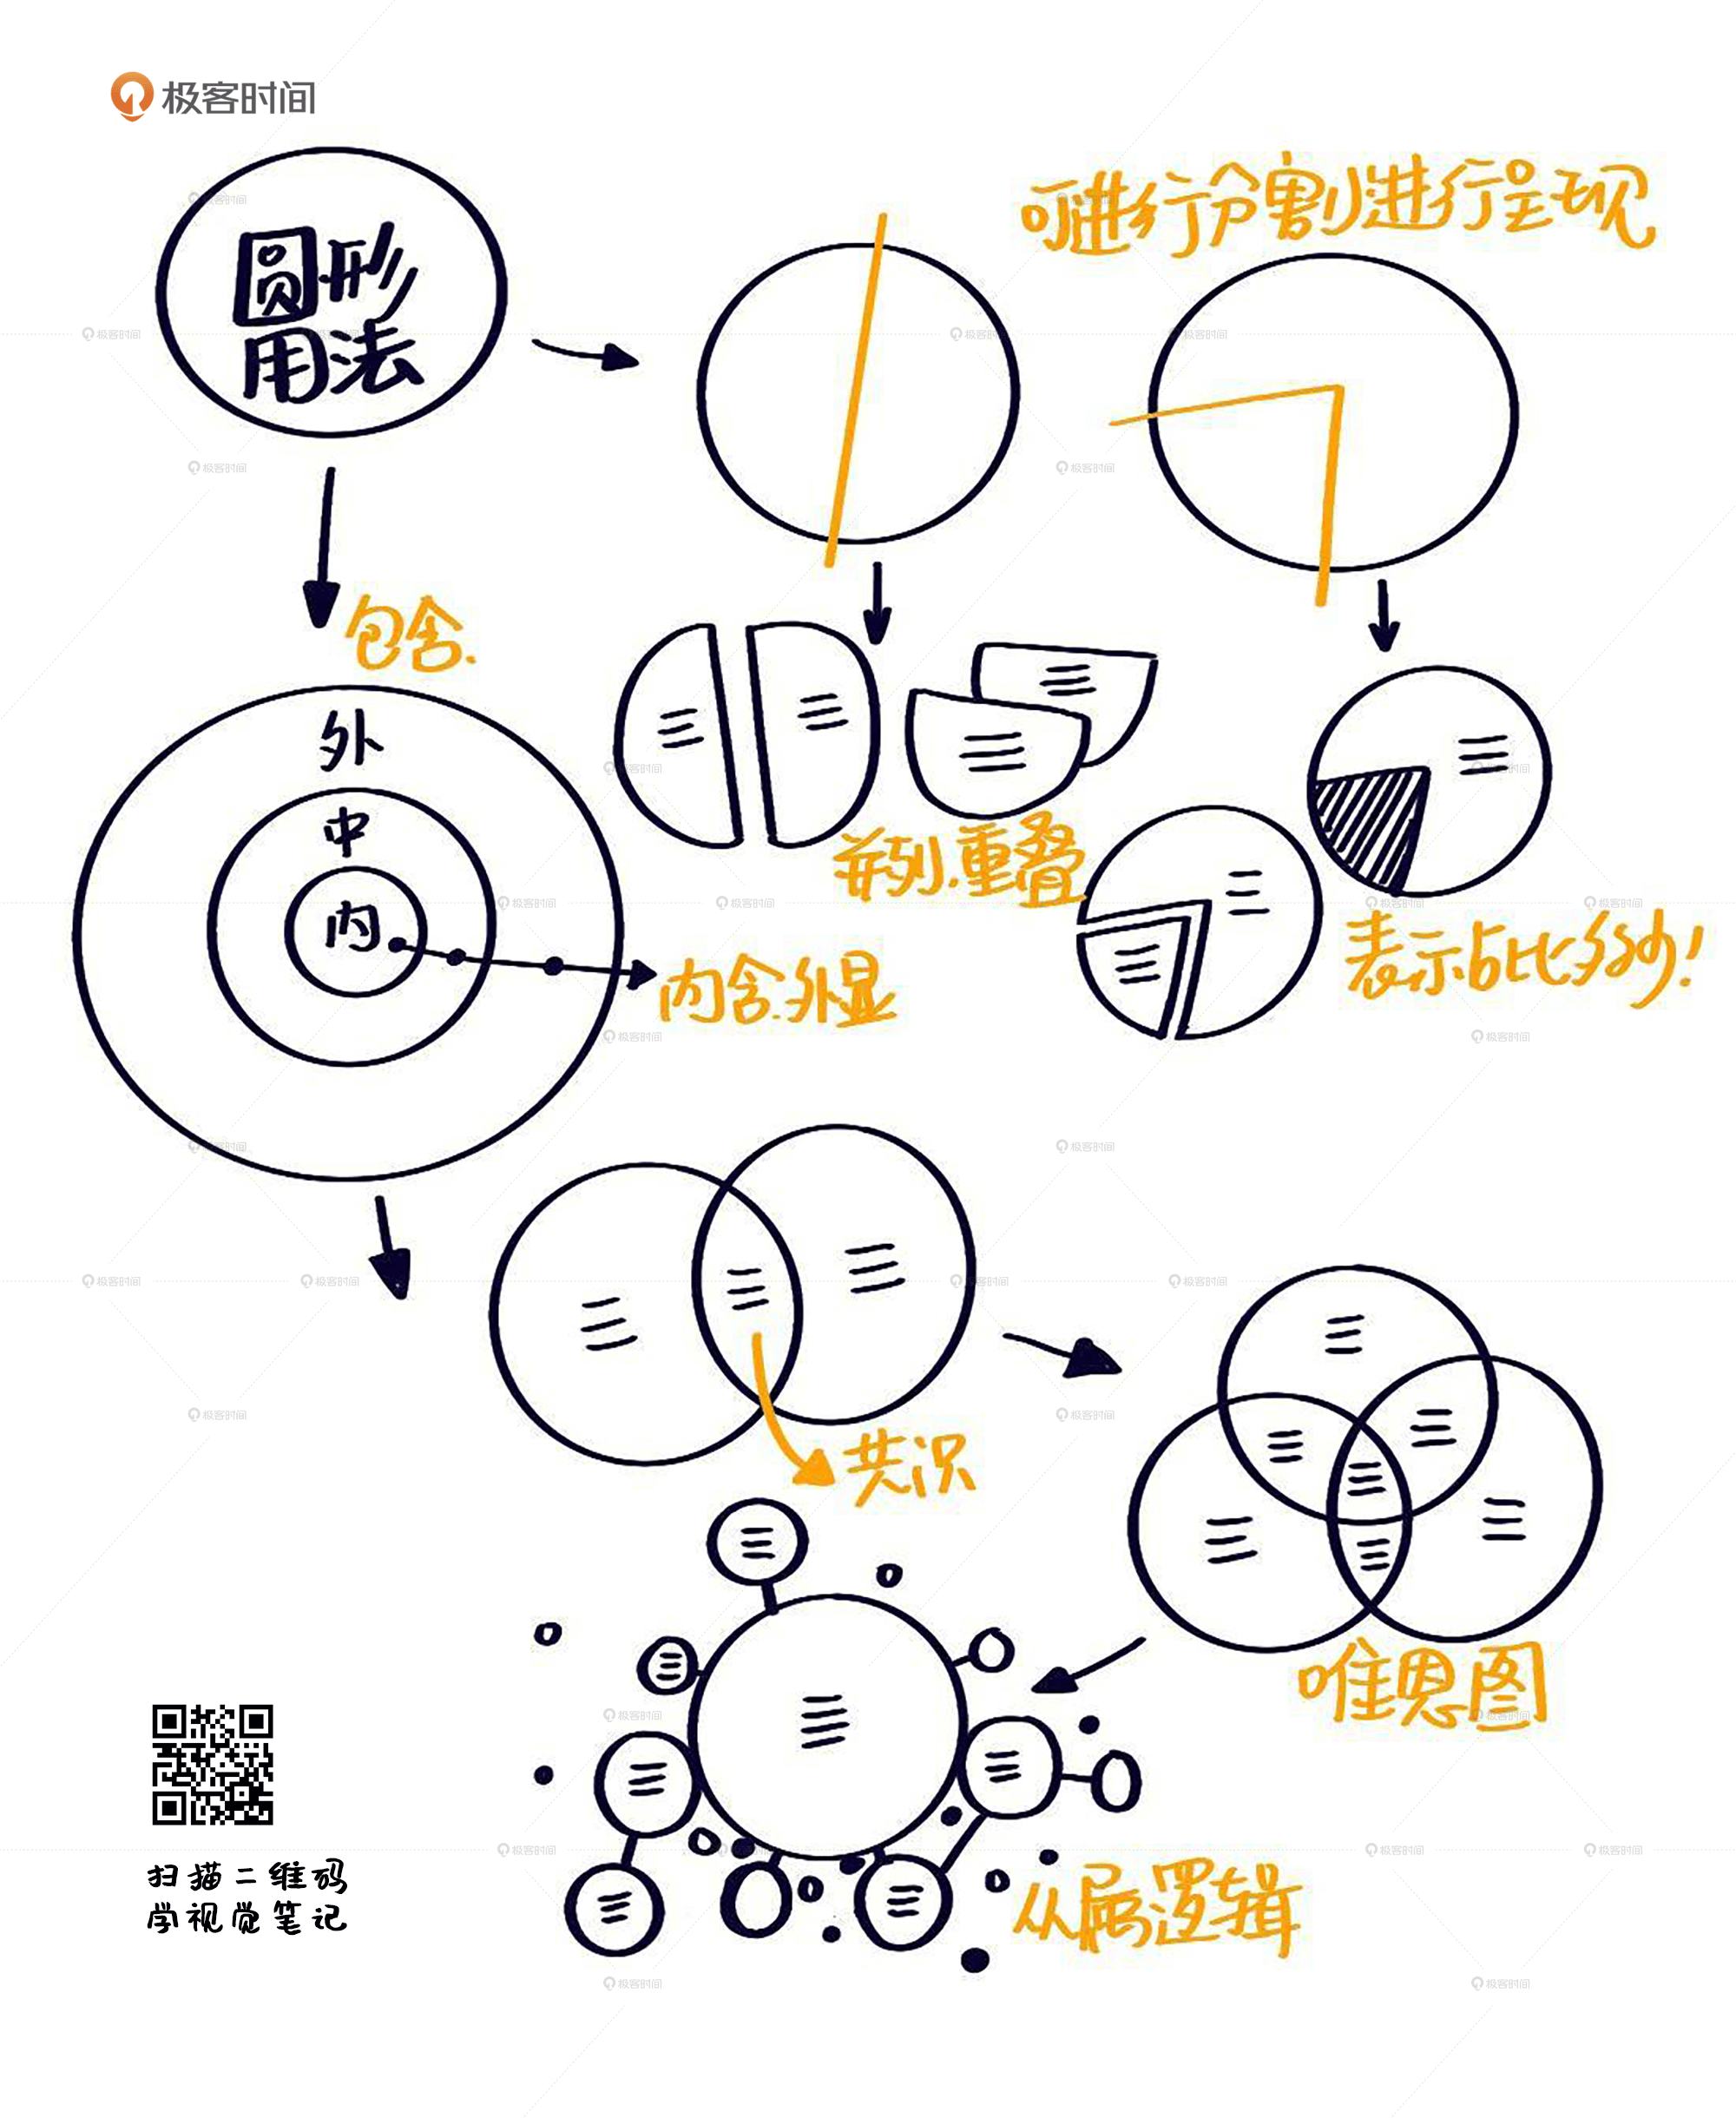 极客时间
圆形
用法
可进行分割进行呈现
包含.
外
中
内
内含.外显
并列.重叠
表示占比多少!
共识
唯恩图
从属逻辑
扫描二维码
学视觉笔记